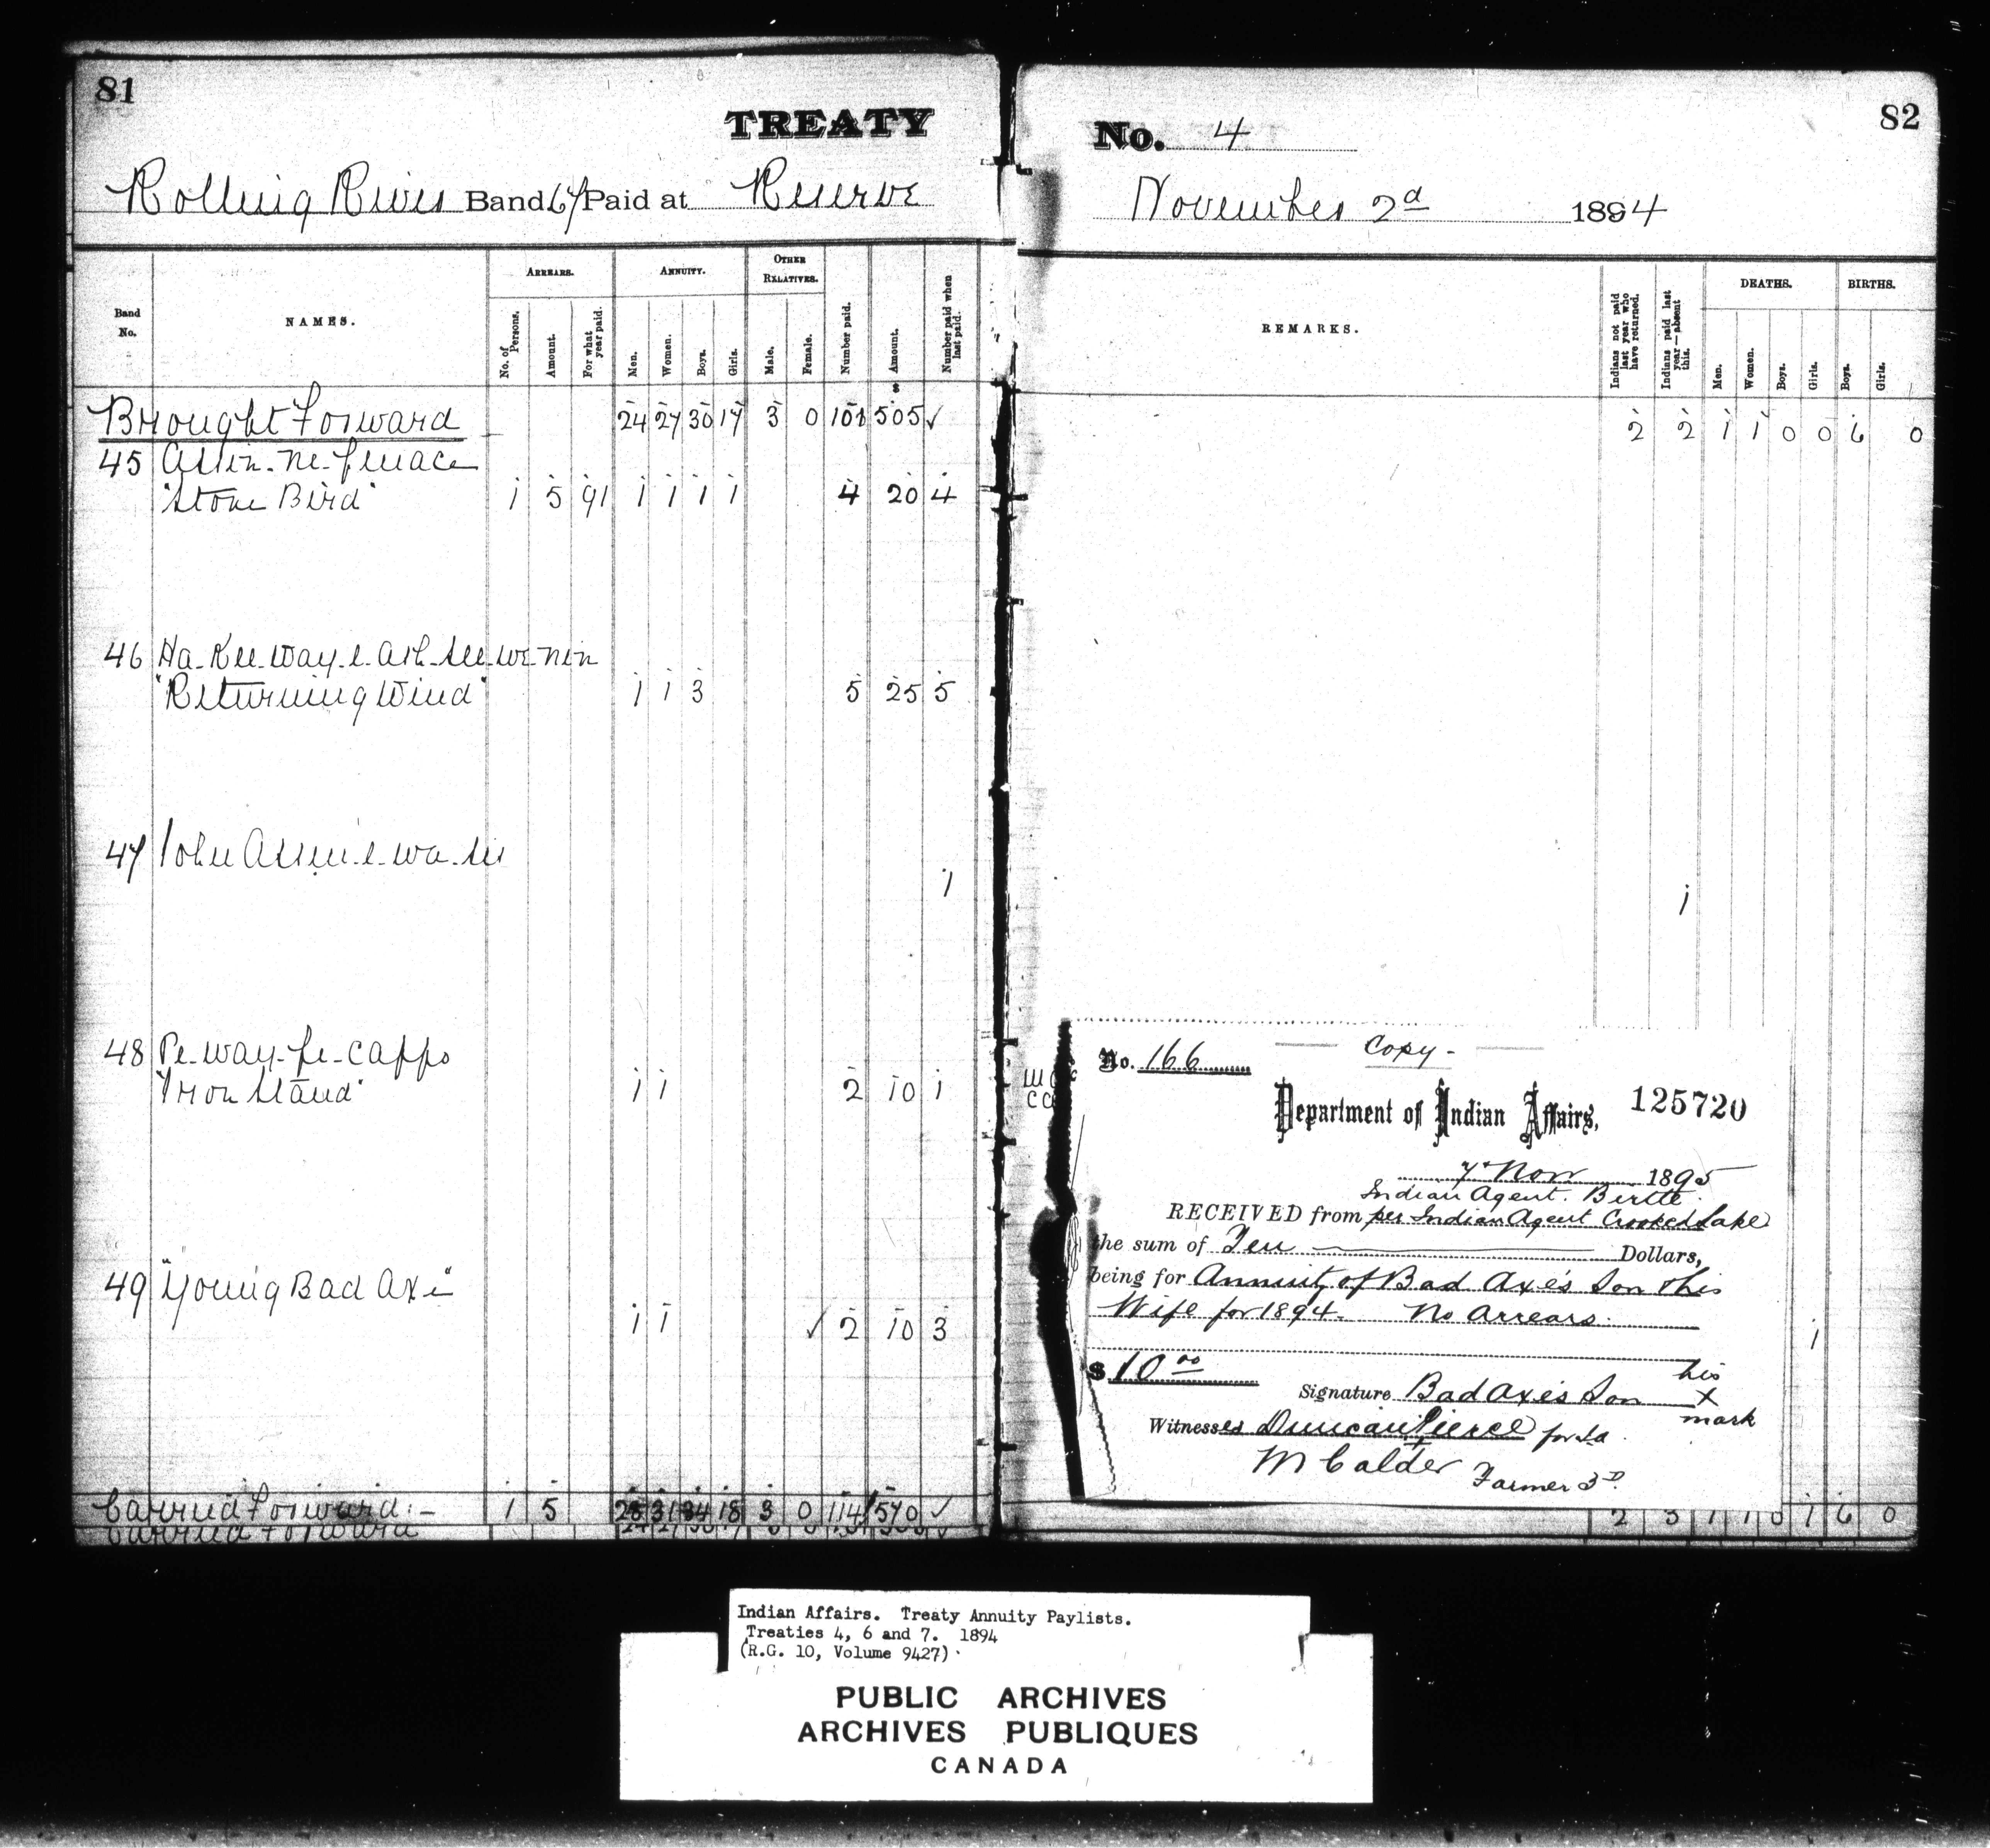 81
TREATY
Rolling River Band 67 Paid at Reserve
Band No.
NAMES.
ARREARS.
No. of Persons.
Amount.
For what year paid.
ANNUITY.
Men.
Women.
Boys.
Girls.
OTHER RELATIVES.
Male.
Female.
Number paid.
Amount.
Number paid when last paid.
$
Brought Forward 24 27 30 17 3 0 101 505 ✓
45 Assin-ne-penace
"Stone Bird" 1 5 91 1 1 1 1 4 20 4
46 Ha-Kee-way-e-ash-see-we-nin
"Returning Wind" 1 1 3 5 25 5
47 John Assin-e-wa-sis
1
48 Pe-way-pe-cappo
"Iron Stand" 1 1 2 10 1
49 "Young Bad Axe"
1 1 ✓ 2 10 3
Carried Forward:- 1 5 28 31 34 18 3 0 114 570 ✓
Carried Forward
82
No. 4
November 2d 1894
REMARKS.
Indians not paid last year who have returned.
Indians paid last year—absent this.
DEATHS.
Men.
Women.
Boys.
Girls.
BIRTHS.
Boys.
Girls.
2 2 1 1 0 0 6 0
1
No. 166 Copy-
Department of Indian Affairs, 125720
7th Nov 1895
Indian Agent. Birtle
RECEIVED from per Indian Agent Crooked Lake
the sum of Ten Dollars,
being for Annuity of Bad Axe's Son & his
Wife for 1894. No Arrears.
1
$10 00
his
Signature Bad Axe's Son X
mark
Witnesses Duncan Pierce for I.A.
M Calder Farmer 3D.
2 3 1 1 0 1 6 0
Indian Affairs. Treaty Annuity Paylists.
Treaties 4, 6 and 7. 1894
(R.G. 10, Volume 9427)
PUBLIC ARCHIVES
ARCHIVES PUBLIQUES
CANADA